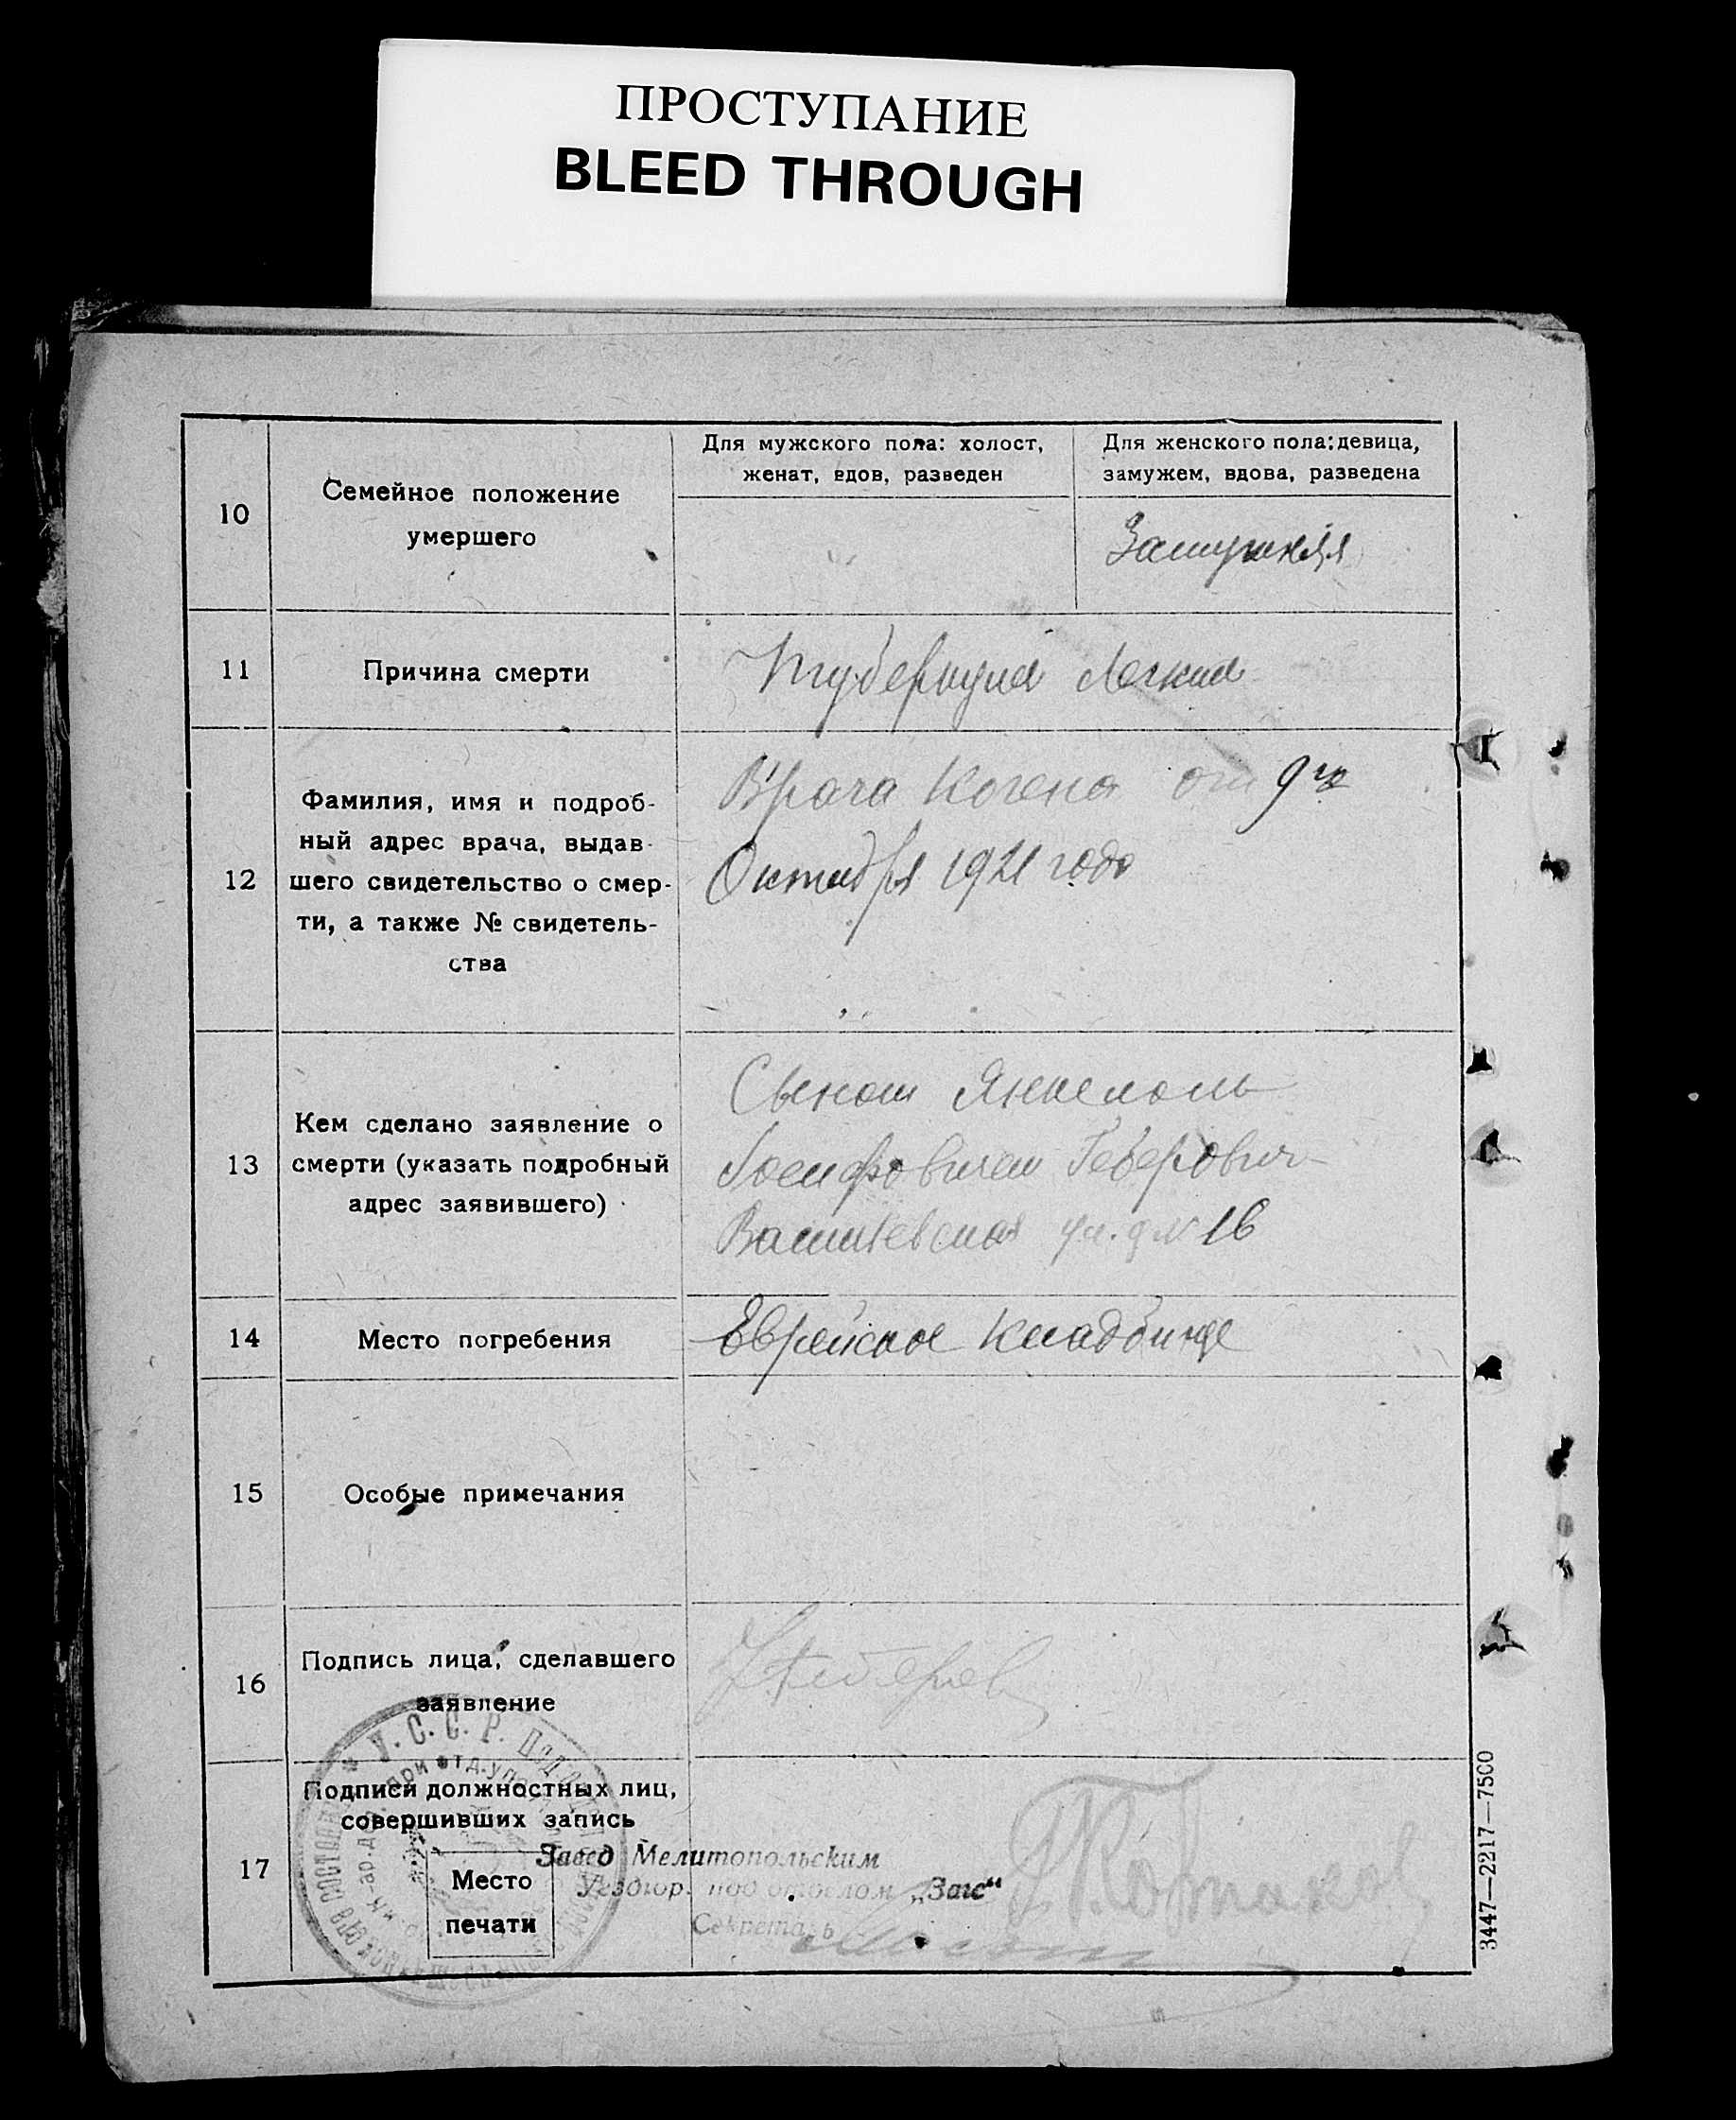 ПРОСТУПАНИЕ
BLEED THROUGH
10
Семейное положение
умершего
Для мужского пола: холост,
женат, вдов, разведен
Для женского пола: девица,
замужем, вдова, разведена
Замужняя
11
Причина смерти
Легких
12
Фамилия, имя и подроб-
ный адрес врача, выдав-
шего свидетельство о смер-
ти, а также № свидетель-
ства
Врача Когена от 9го
Октября 1921 года
13
Кем сделано заявление о
смерти (указать подробный
адрес заявившего)
Сыном Янкелом
Иосифовичем
ул. д № 16
14
Место погребения
Еврейское Кладбище
15
Особые примечания
16
Подпись лица, сделавшего
заявление
17
Подписи должностных лиц,
совершивших запись
Место
печати
У. С. С. Р.
Завед Мелитопольским
Уездгор. подотделом „Загс“
Секретарь
3447—2217—7500